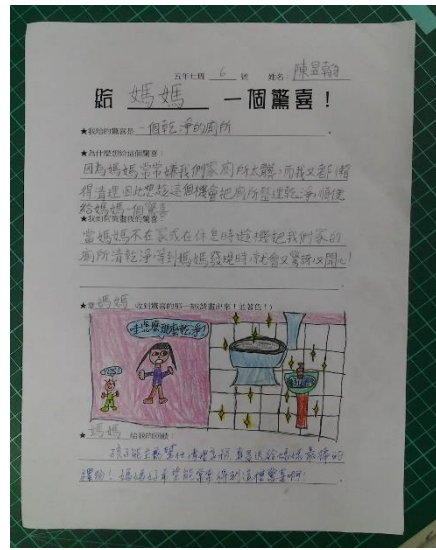 五年七班 6 號 姓名：陳昱翰
給 媽媽 一個驚喜！
★我給的驚喜是 一個乾淨的廁所 。
★為什麼想給這個驚喜：
因為媽媽常常嫌我們家廁所太髒，而我又都懶
得清理，因此想趁這個機會把廁所整理乾淨，順便
給媽媽一個驚喜
★我如何策畫我的驚喜
當媽媽不在家或在休息時，趁機把我們家的
廁所清乾淨，等到媽媽發現時，就會又驚訝又開心！
★當 媽媽 收到驚喜的那一刻(請畫出來！並著色！)
哇！怎麼那麼乾淨？
★ 媽媽 給我的回饋：
孩子能主動幫忙清理
真是送給媽媽最棒的
禮物！媽媽好希望能常常得到這個驚喜啊！